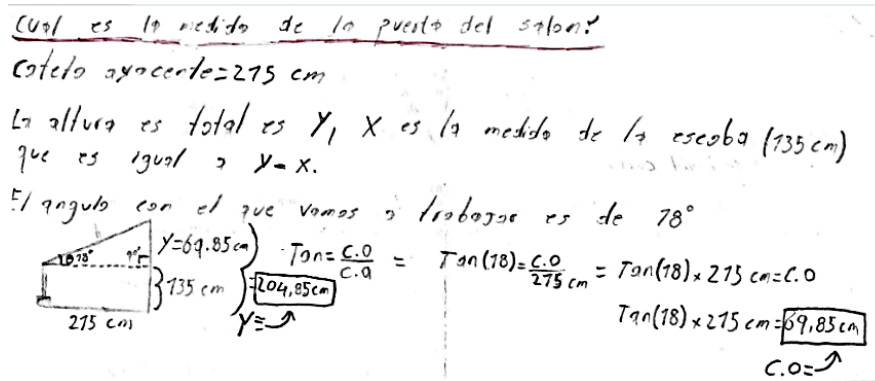 Cual es la medida de la puerta del salon?
Cateto ayacente=215 cm
La altura es total es Y, X es la medida de la escoba (135 cm)
que es igual a Y-X.
El angulo con el que vamos a trabajar es de 18°
θ 18° 90° Y=69.85cm
135 cm
=204,85cm
215 cm Y=
Tan= C.O/C.a = Tan(18)= C.O/215 cm = Tan(18)×215 cm=C.O
Tan(18)×215 cm=69,85cm
C.O=